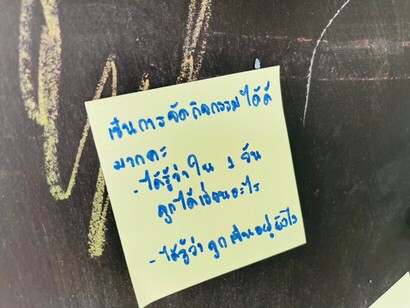 เป็นการจัดกิจกรรมได้ดี
มากคะ
- ได้รู้ว่าใน 1 วัน
ลูกได้เรียนอะไร
- ได้รู้ว่าลูกเป็นอยู่ยังไง